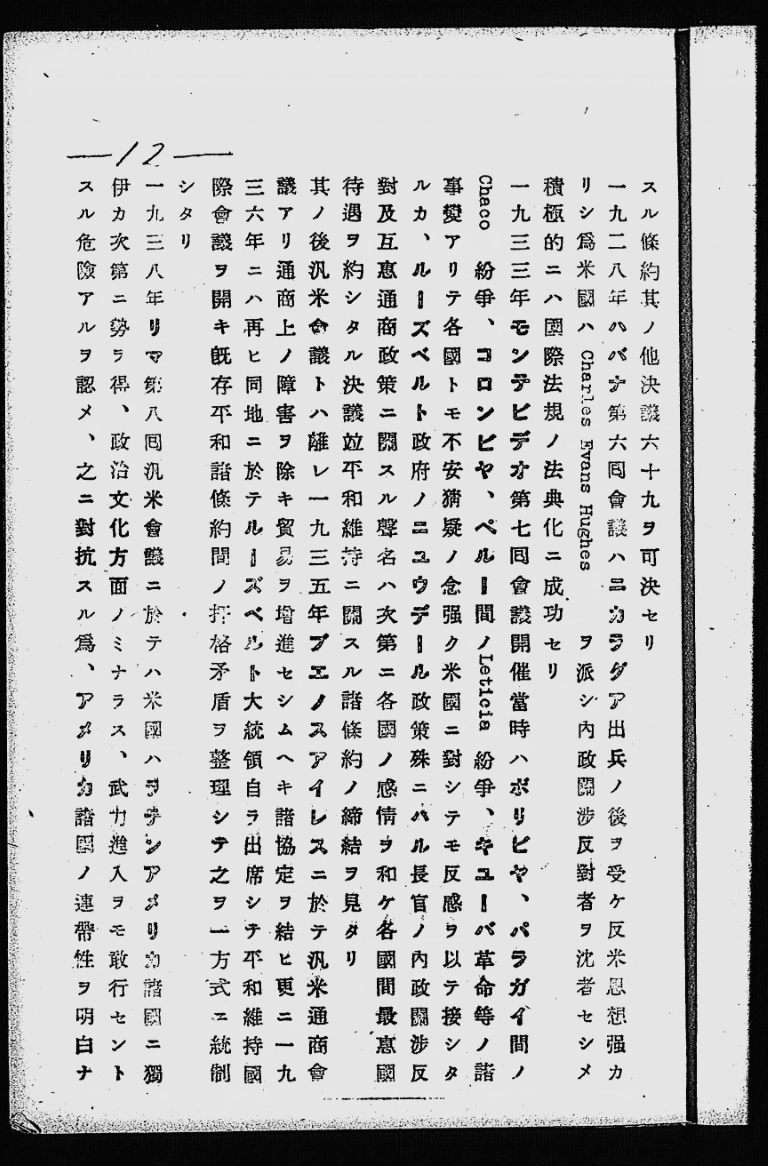 —12—
スル條約其ノ他決議六十九ヲ可決セリ
一九二八年ハバナ第六囘會議ハニカラグア出兵ノ後ヲ受ケ反米思想强カ
リシ爲米國ハ Charles Evans Hughes ヲ派シ內政關涉反對者ヲ沈者セシメ
積極的ニハ國際法規ノ法典化ニ成功セリ
一九三三年モンテビデオ第七囘會議開催當時ハボリビヤ、パラガイ間ノ
Chaco 紛爭、コロンビヤ、ペルー間ノ Leticia 紛爭、キユーバ革命等ノ諸
事變アリテ各國トモ不安猜疑ノ念强ク米國ニ對シテモ反感ヲ以テ接シタ
ルカ、ルーズベルト政府ノニユウデール政策殊ニハル長官ノ內政關涉反
對及互惠通商政策ニ關スル聲名ハ次第ニ各國ノ感情ヲ和ケ各國間最惠國
待遇ヲ約シタル決議竝平和維持ニ關スル諸條約ノ締結ヲ見タリ
其ノ後汎米會議トハ離レ一九三五年ブエノスアイレスニ於テ汎米通商會
議アリ通商上ノ障害ヲ除キ貿易ヲ增進セシムヘキ諸協定ヲ結ヒ更ニ一九
三六年ニハ再ヒ同地ニ於テルーズベルト大統領自ラ出席シテ平和維持國
際會議ヲ開キ旣存平和諸條約間ノ扞格矛盾ヲ整理シテ之ヲ一方式ニ統制
シタリ
一九三八年リマ第八囘汎米會議ニ於テハ米國ハラテンアメリカ諸國ニ獨
伊カ次第ニ勢ヲ得、政治文化方面ノミナラス、武力進入ヲモ敢行セント
スル危險アルヲ認メ、之ニ對抗スル爲、アメリカ諸國ノ連帶性ヲ明白ナ